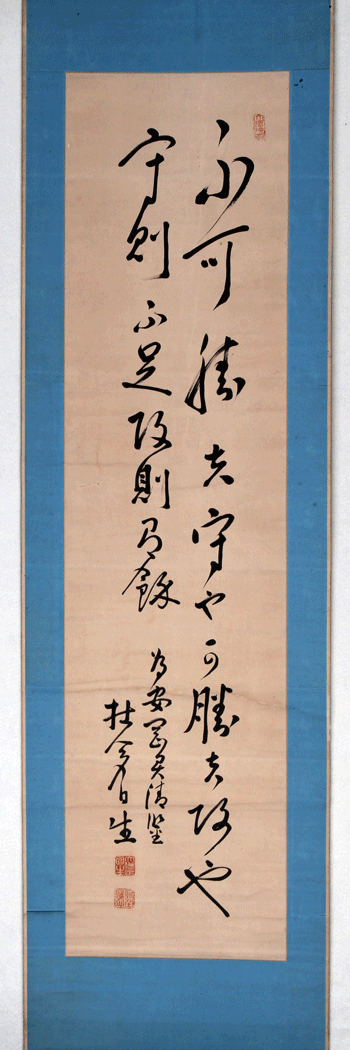 不可勝者守也可勝者攻也
守則不足攻則有餘
為安岡君清鑒